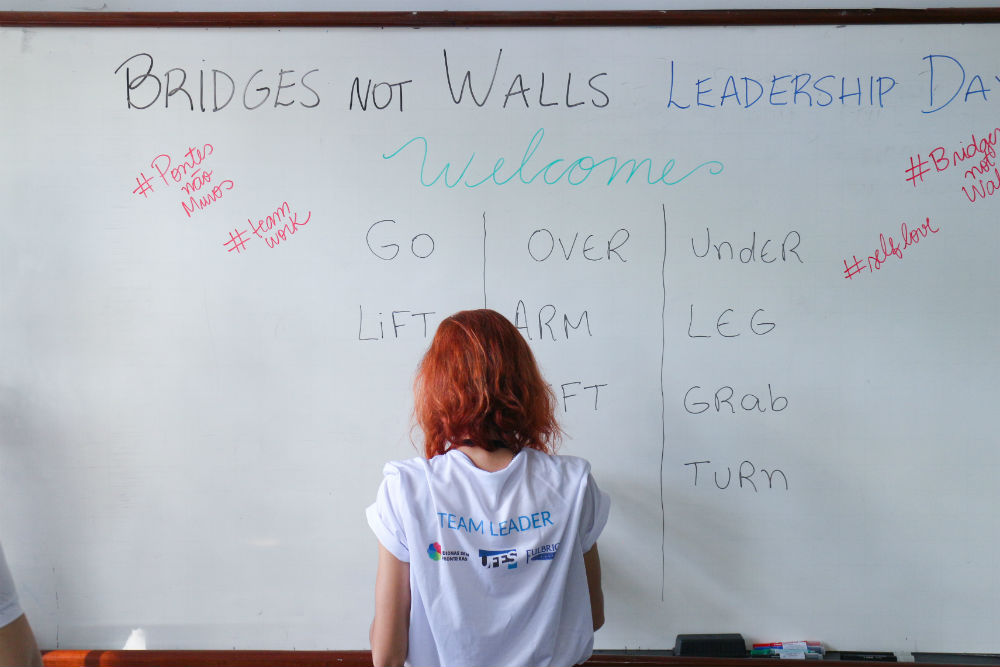 BRIDGES NOT WALLS LEADERSHIP DA
Welcome
#Pontes
não
Muros
#team
work
#Bridges
not
Wal
#selflove
GO OVER UNDER
LIFT ARM LEG
FT GRab
TURN
TEAM LEADER
UFES
FULBRIG